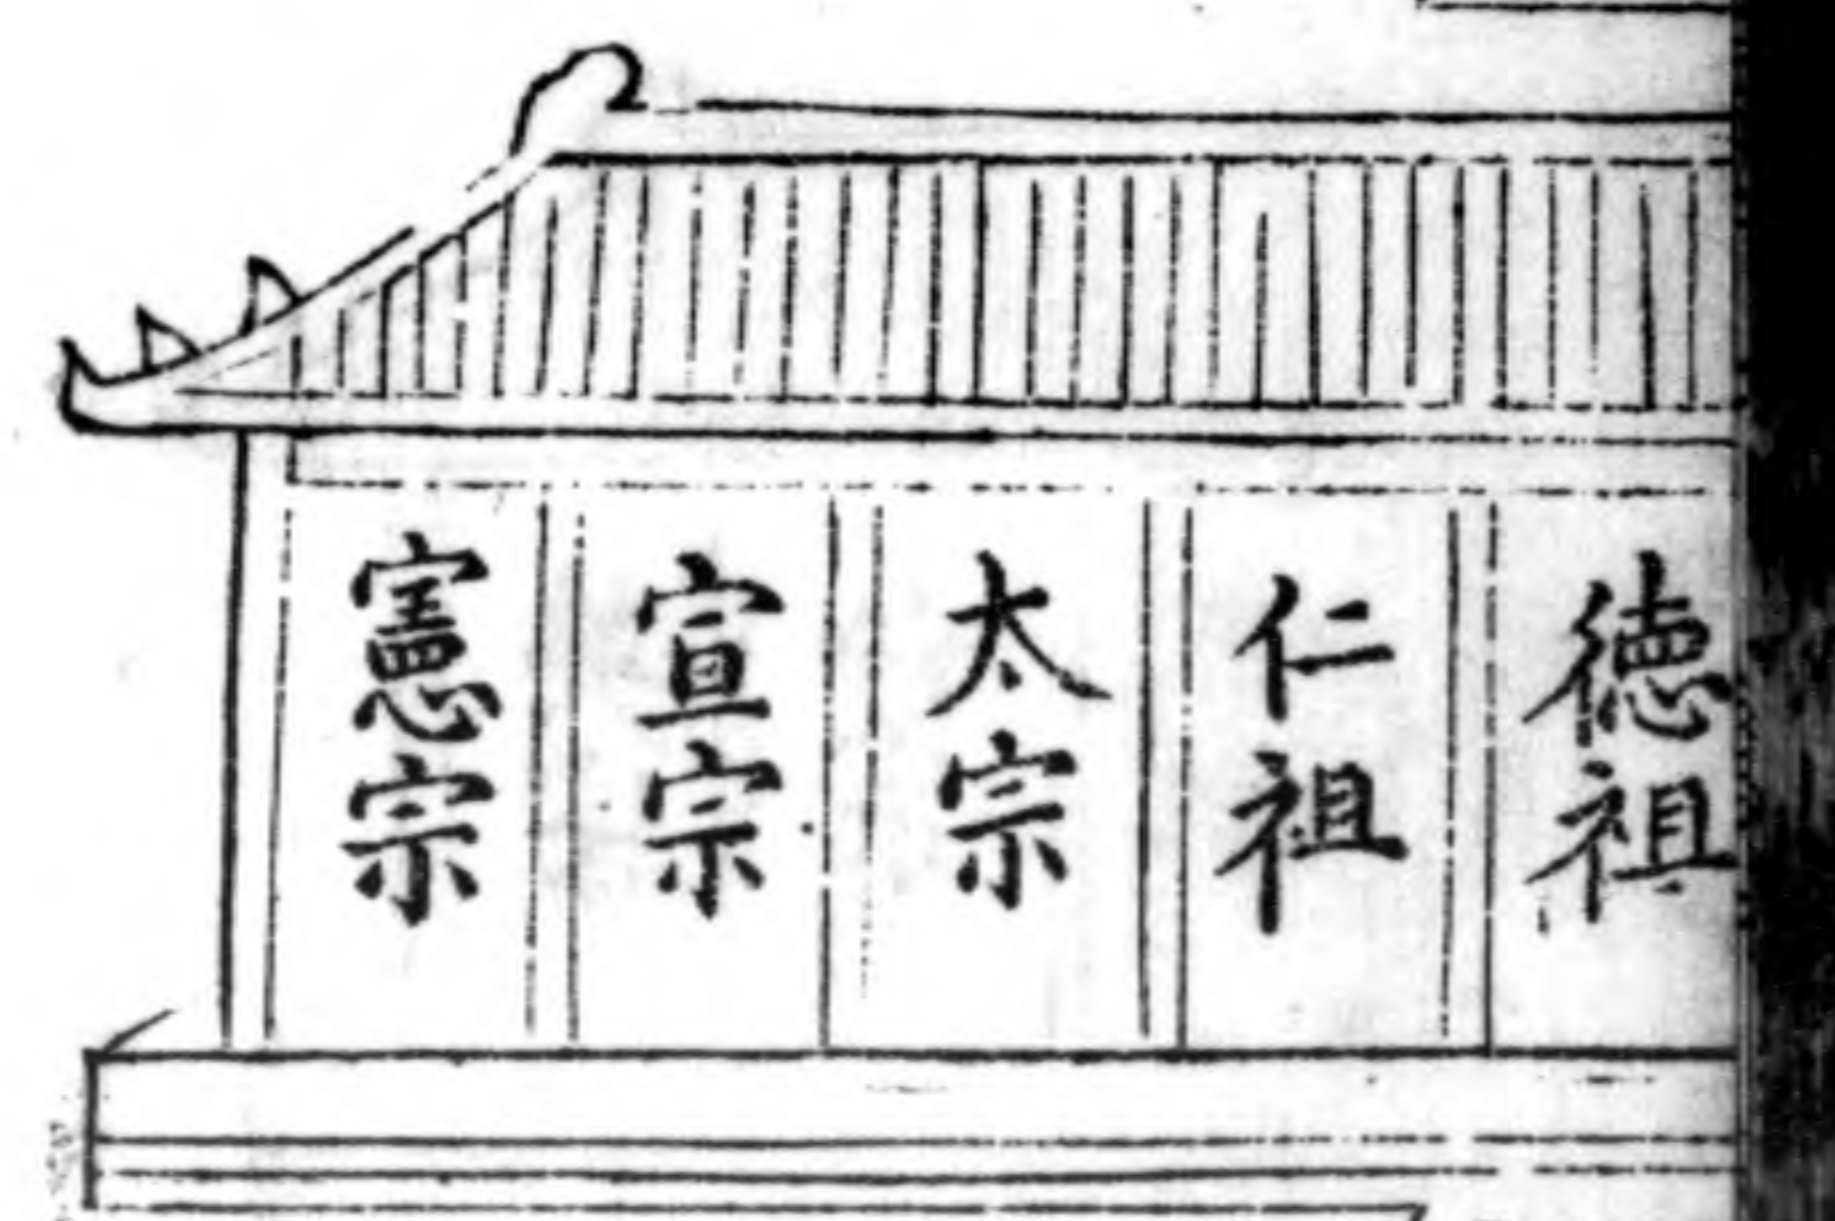 德祖
仁祖
太宗
宣宗
憲宗